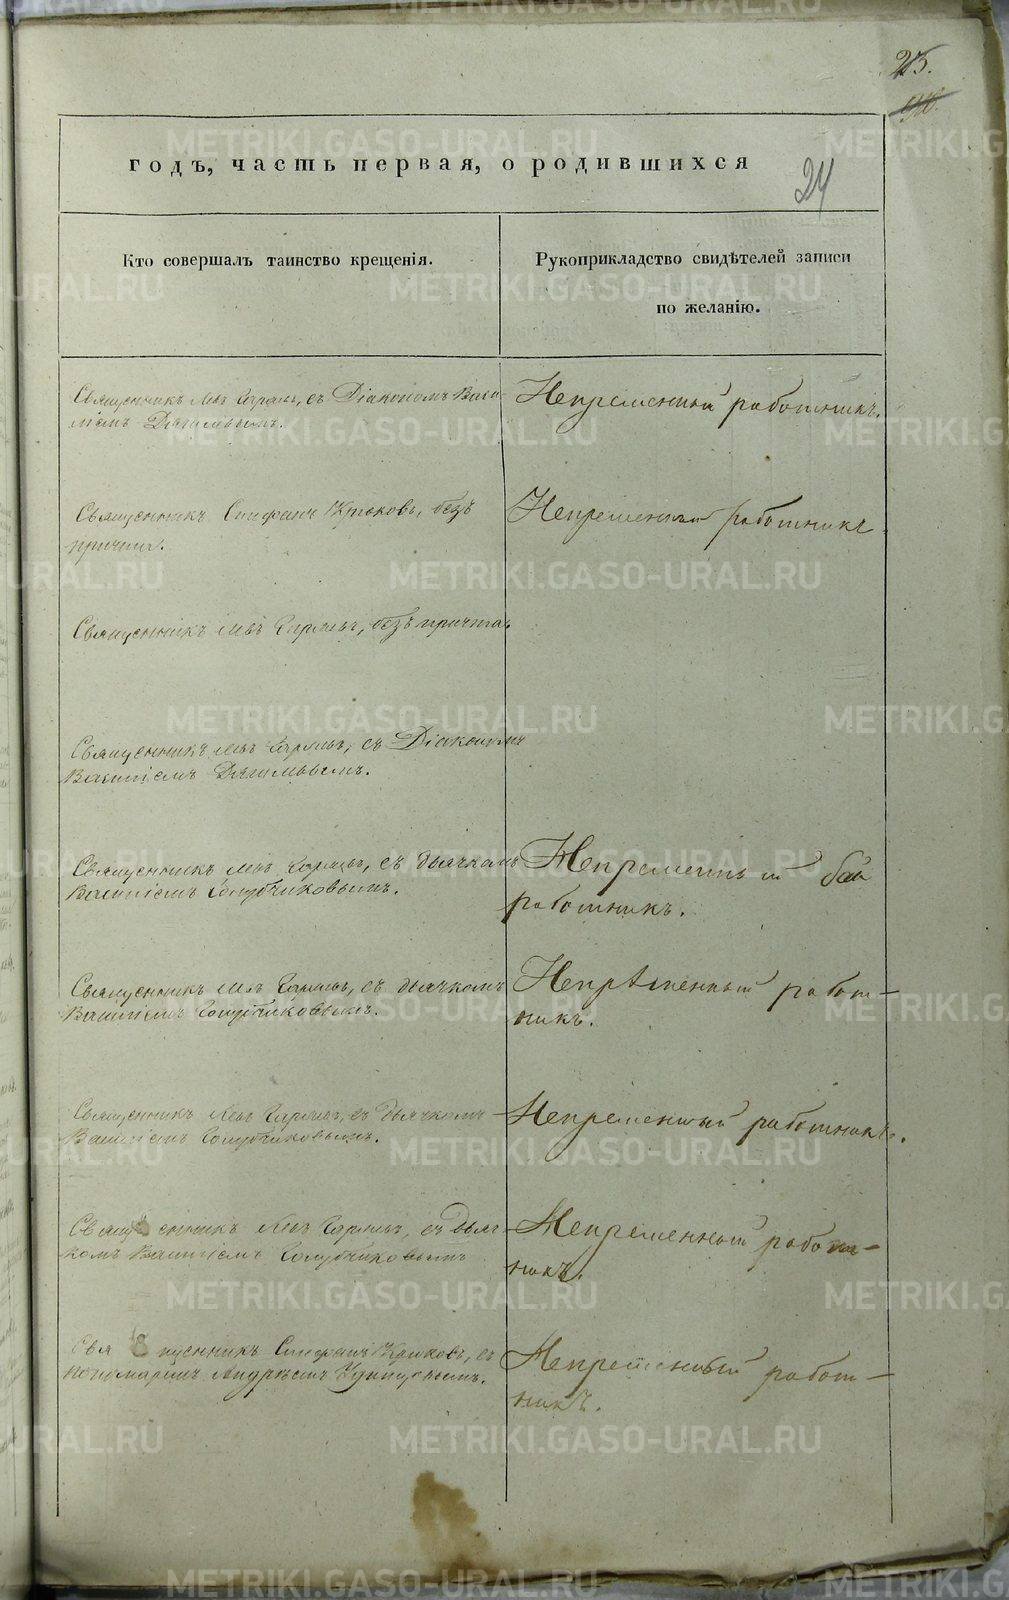 23.
24
годъ, часть первая, о родившихся
Кто совершалъ таинство крещенія.
Рукоприкладство свидѣтелей записи
по желанію.
Священникъ Левъ съ Діакономъ Васи-
ліемъ
Непременный работникъ.
Священникъ Стефанъ Крюковъ, безъ
причта.
Непременный работникъ
Священникъ Левъ безъ причта.
Священникъ Левъ съ Діакономъ
Василіемъ
Священникъ Левъ съ дьячкомъ
Василіемъ Голубчиковымъ.
Непременный
работникъ.
Священникъ Левъ съ дьячкомъ
Василіемъ Голубчиковымъ.
Непрѣменный работ-
никъ.
Священникъ Левъ съ дьячкомъ
Василіемъ Голубчиковымъ.
Непременный работникъ.
Священникъ Левъ съ дьяч-
комъ Василіемъ Голубчиковымъ
Непременный работ-
никъ.
Священникъ Стефанъ Крюковъ, съ
пономаремъ Андреемъ
Непременный работ-
никъ.
METRIKI.GASO-URAL.RU